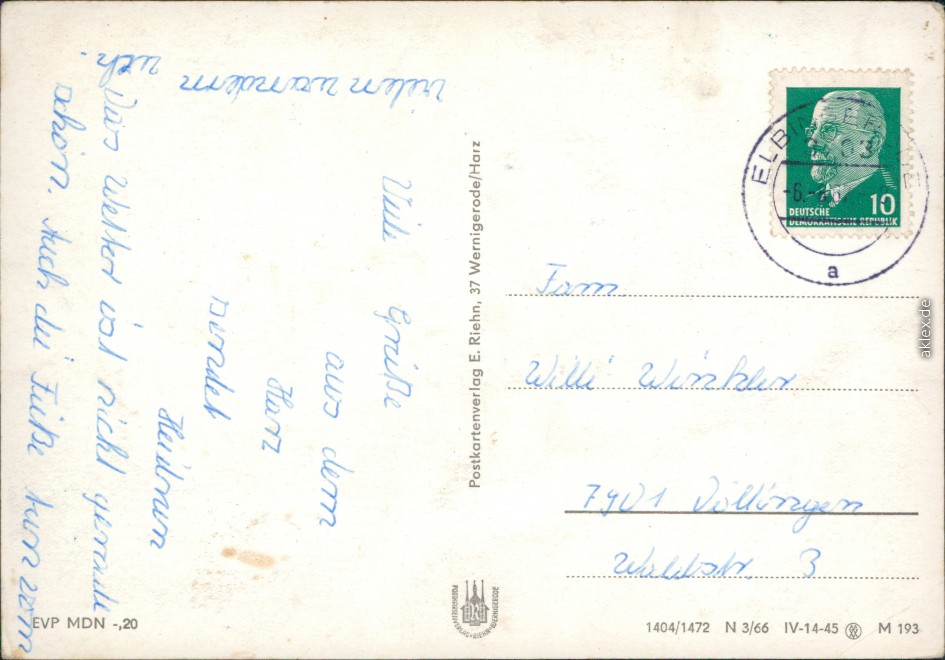 Viele Grüße
aus dem
Harz
sendet
Heidrun
Das Wetter ist nicht gerade
schön. Auch die Füße tun vom
vielen wandern
weh.
Postkartenverlag E. Riehn, 37 Wernigerode/Harz
10
DEUTSCHE
DEMOKRATISCHE REPUBLIK
a
Fam.
Willi Winkler
7901 Döllingen
Waldstr. 3
EVP MDN -,20
POSTKARTENVERLAG•RIEHN•WERNIGERODE
1404/1472 N 3/66 IV-14-45 M 193
aklex.de